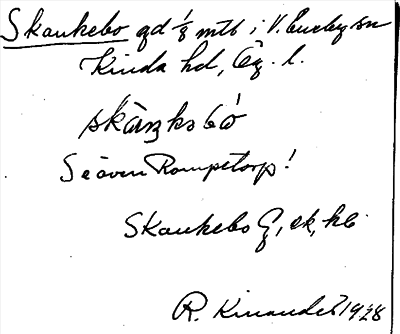 Skankebo gd ½ mtl i V. Eneby sn
Kinda hd, Ög. l.
Se även Rompetorp!
Skankebo
R. Kinander 1928